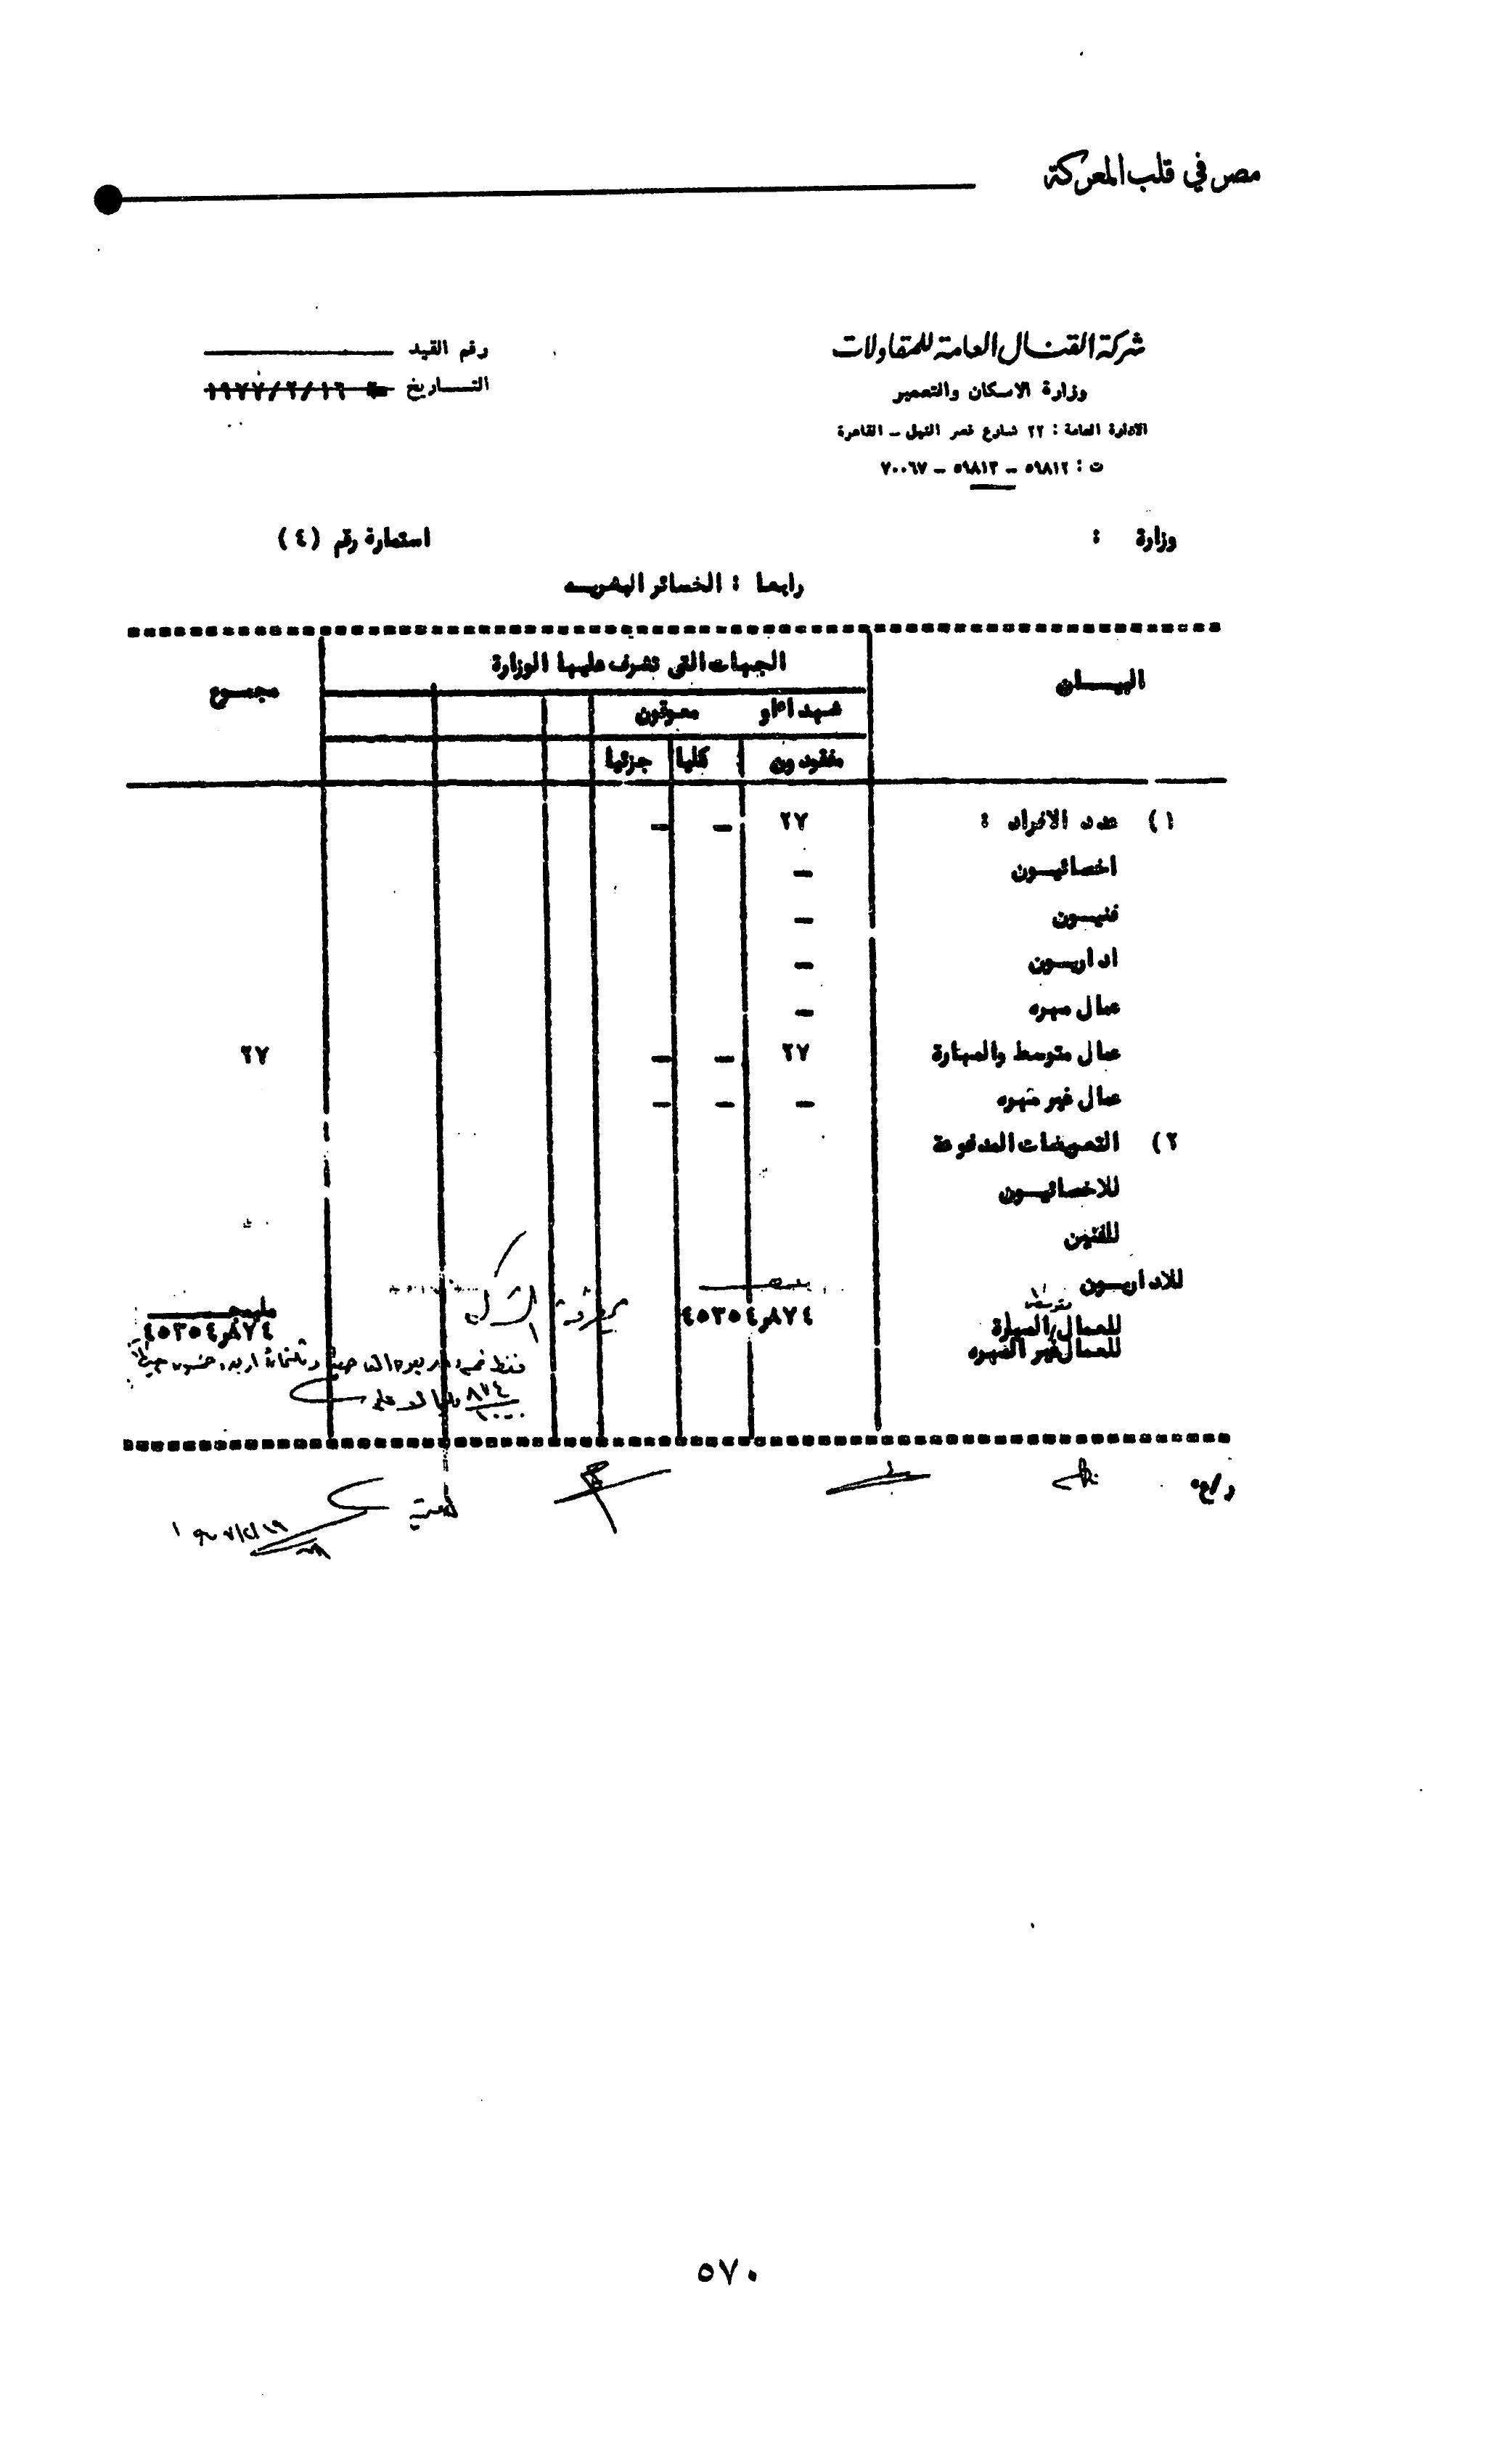 مصر في قلب المعركة
شركة القنال العامة للمقاولات
وزارة الاسكان والتعمير
الادارة العامة : ٢٢ شارع قصر النيل ــ القاهرة
ت : ٥٩٨١٢ ــ ٥٩٨١٣ ــ ٧٠٠٦٧
رقم القيد
التـــاريخ ١٩٧٧/٢/١٦
وزارة :
استمارة رقم (٤)
رابعا : الخسائر البشريــه
البيـــان
الجهات التى تشرف عليها الوزارة
مجمــوع
شهداء او معوقون
مفقودون كليا جزئيا
١) عدد الافراد : ٢٧ ــ ــ
اخصائيــون ــ
فنيــون ــ
اداريــون ــ
عمال مهره ــ
عمال متوسط والمهارة ٢٧ ــ ــ ٢٧
عمال غير مهره ــ ــ ــ
٢) التعويضات المدفوعة
للاخصائيــون
للفنين
للاداريــون
للعمال المهارة ٤٥٣٥٤٫٨٧٤ ٤٥٣٥٤٫٨٧٤
للعمال غير المهره
فقط خمسة واربعون الف جنيه وثلثمائة اربعة وخمسون جنيها
٨٧٤
١٠٠٠
٥٧٠